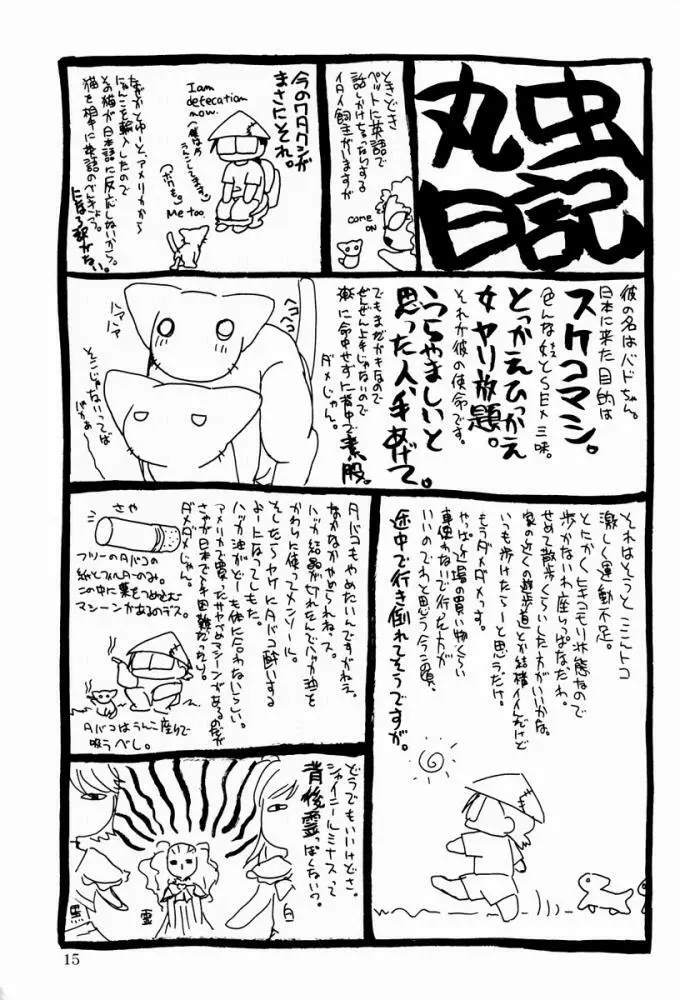 丸虫
日記
ときどき
ペットに英語で
話しかけちゃったりする
イタイ飼主がいますが
come
on
今のワタクシが
まさにそれ。
I am
defecation
now.
Me too
なぜかとゆーとアメリカから
にゃんこを輸入したので
その猫が日本語に反応しないから。
猫を相手に英語のべんきょう。
になる訳がない。
彼の名はバドちゃん。
日本に来た目的は
スケコマシ。
色んな女とSEX三昧。
とっかえひっかえ
女ヤリ放題。
それが彼の使命です。
うらやましいと
思った人、手あげて。
でもまだガキなので
ぜんぜん上手じゃないので
楽に命中せずに背中で素股。
ダメじゃん。
ヘコヘコ
ハアハア
そこじゃないってば
ばかぁー
それはそうとここんトコ
激しく運動不足。
とにかくヒキコモリ状態なので
歩かないわ座りっぱなだわ。
せめて散歩くらいした方がいいかな。
家の近くの遊歩道とか結構イイんだけど
いつも歩けたらーと思うだけ。
もうダメダメっす。
やっぱ近場の買い物くらい
車使わないで行った方が
いいのでわと思う今この頃、
途中で行き倒れてそうですが。
タバコもやめたいんですがねぇ。
なかなかやめられねっス。
ハッカ結晶が切れたんでハッカ油を
かわりに使ってメンソール。
そしたらヤケにタバコ酔いする
よーになってしもた。
ハッカ油がどーも体に合わないらしい。
アメリカで買ったサヤづめマシーンがあるのだが
さやが日本で入手困難だったり。
ダメダメじゃん。
さや
フツーのタバコの
紙とフィルターのみ。
この中に葉をつめこむ
マシーンがあるのデス。
タバコはうんこ座りで
吸うべし。
どうでもいいけどさ。
シャイニールミナスって
背後霊っぽくないっ?
黒
霊
白
15